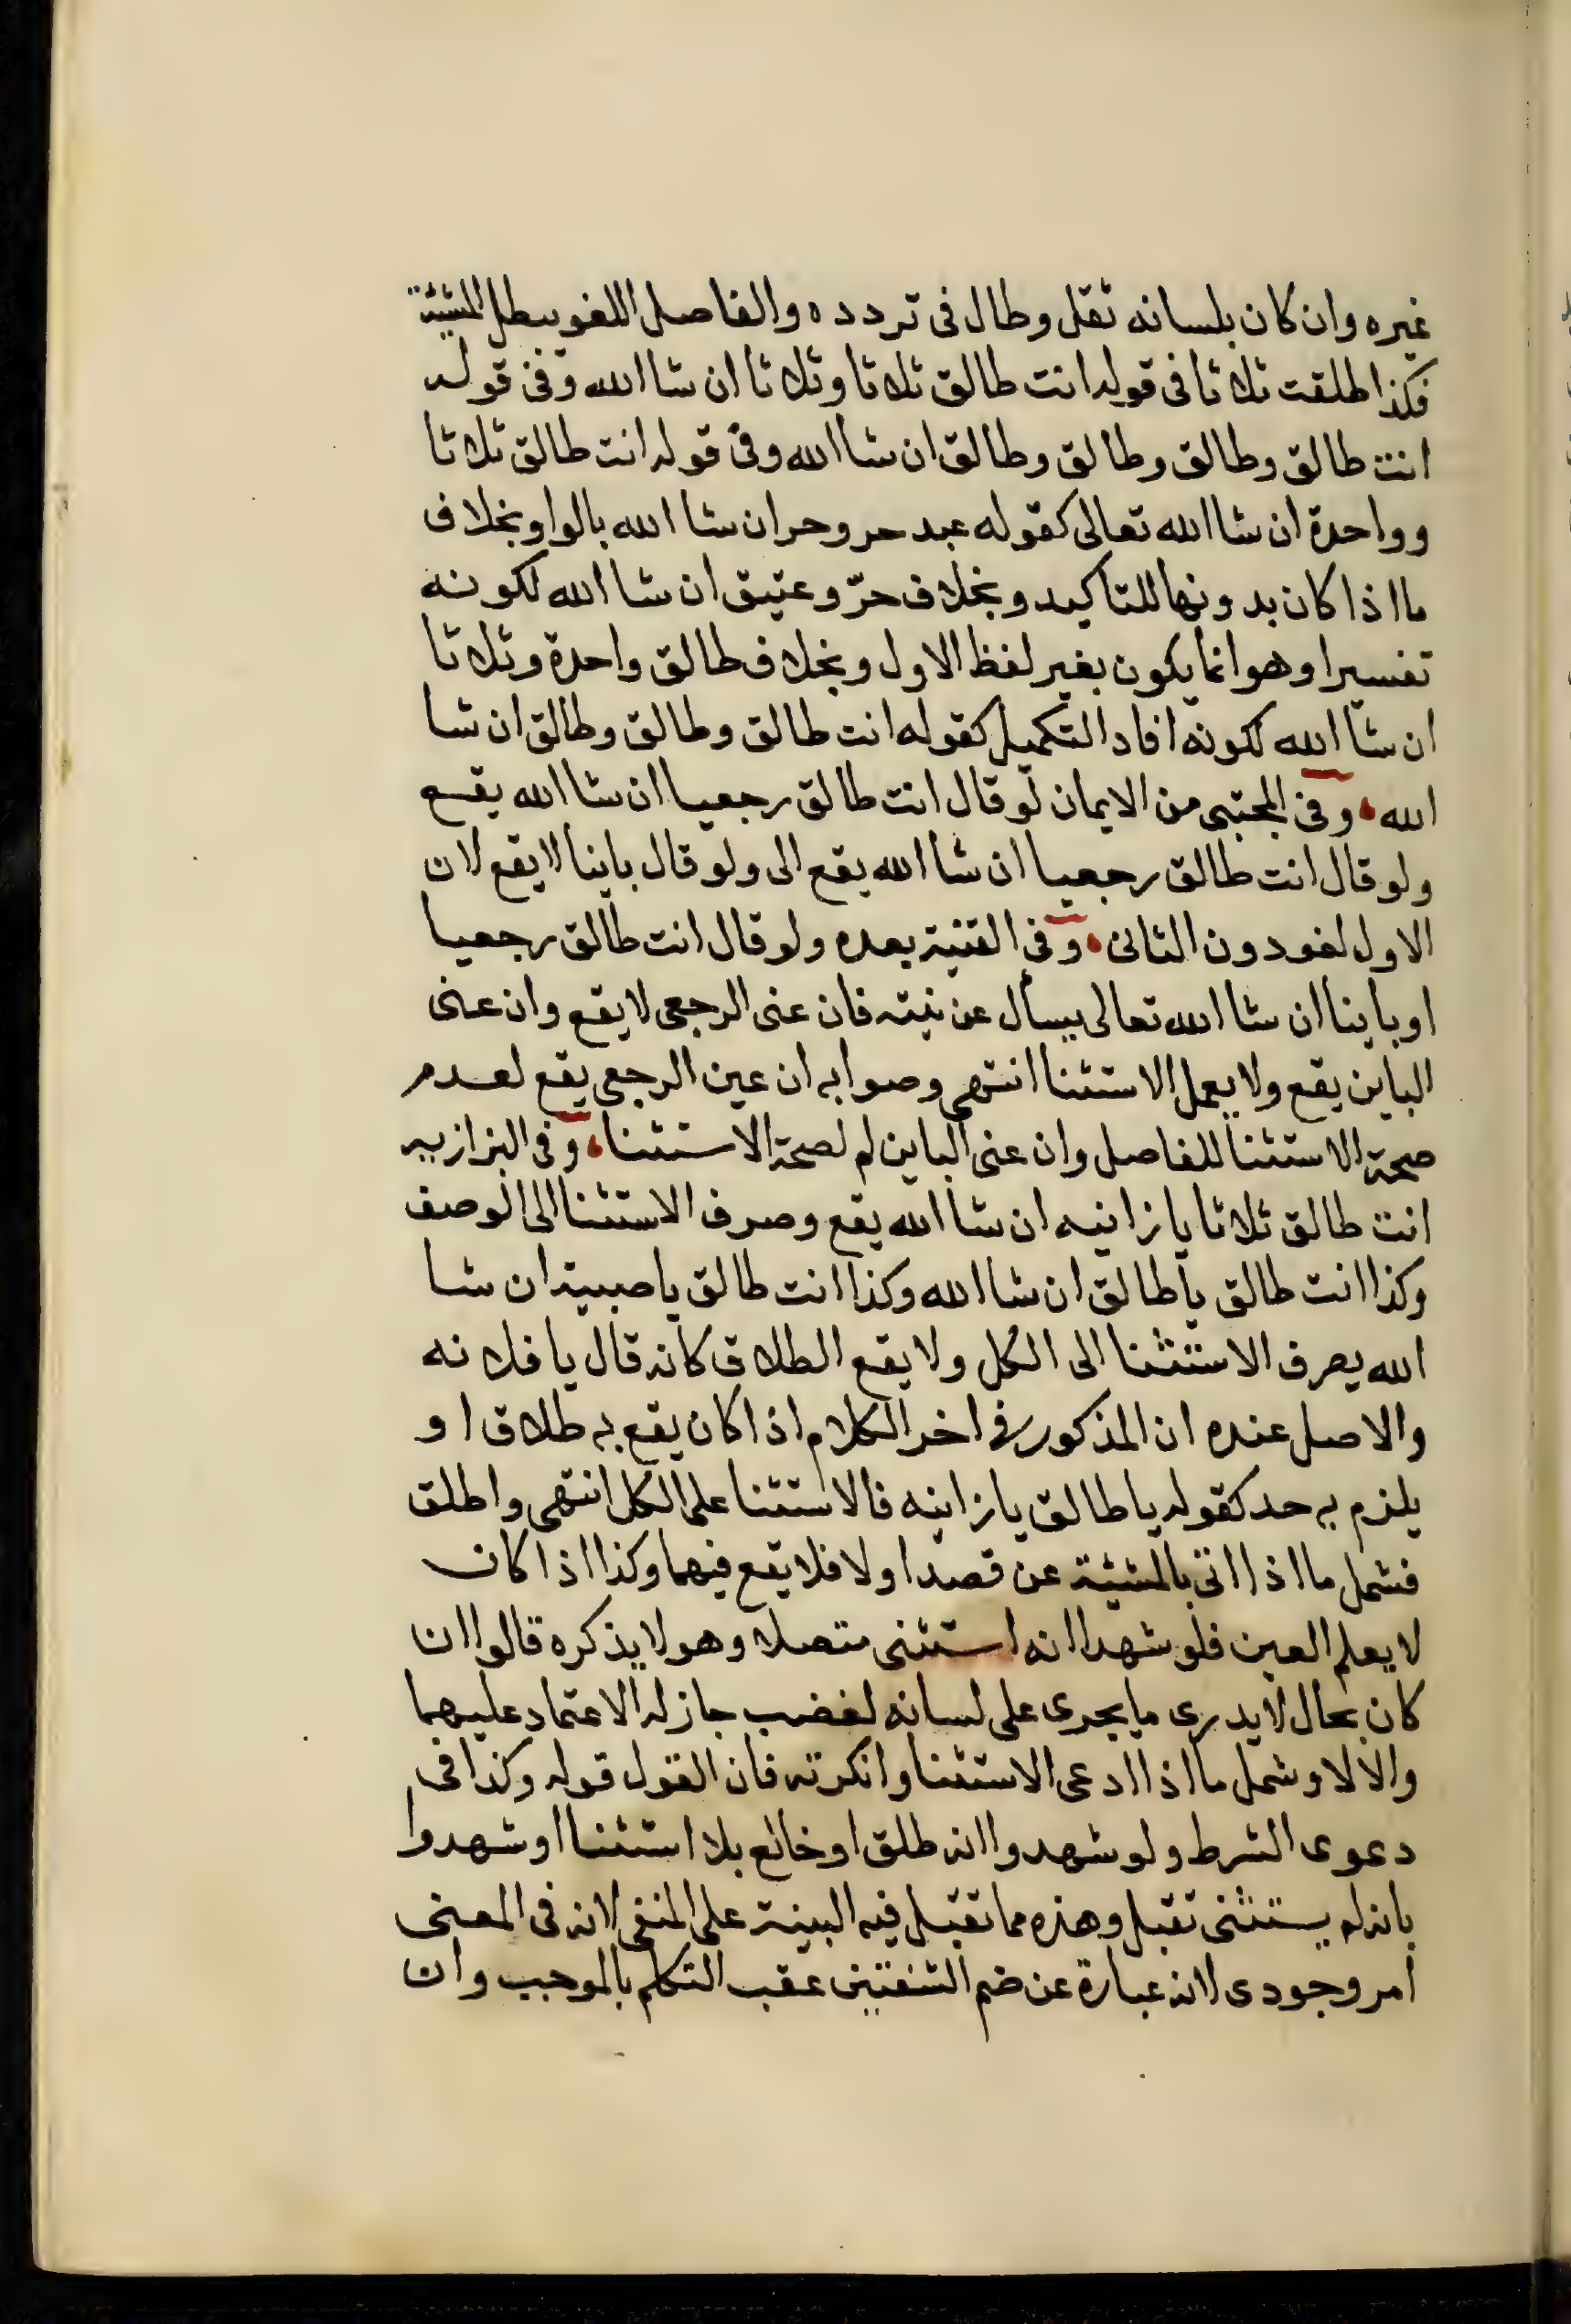 غيره وان كان بلسانه ثقل وطال فى تردده والفاصل اللغو يبطل المشيئة
فكذا طلقت ثلاثا فى قوله انت طالق ثلاثا وثلاثا ان شا الله وفى قوله
انت طالق وطالق وطالق وطالق ان شا الله وفى قوله انت طالق ثلاثا
وواحدة ان شا الله تعالى كقوله عبد حر وحر ان شا الله بالواو بخلاف
ما اذا كان بدونها للتاكيد وبخلاف حرّ وعتيق ان شا الله لكونه
تفسيرا وهو انما يكون بغير لفظ الاول وبخلاف طالق واحدة وثلاثا
ان شا الله لكونه افاد التكميل كقوله انت طالق وطالق وطالق ان شا
الله وفى المجتبى من الايمان لو قال انت طالق رجعيا ان شا الله يقع
ولو قال انت طالق رجعيا ان شا الله يقع الى ولو قال باينا لا يقع لان
الاول لغو دون الثانى وفى القنية بعده ولو قال انت طالق رجعيا
او باينا ان شا الله تعالى يسأل عن نيته فان عنى الرجعى لا يقع وان عنى
الباين يقع ولا يعمل الاستثنا انتهى وصوابه ان عين الرجعى يقع لعدم
صحة الاستثنا للفاصل وان عنى الباين لم لصحة الاستثنا وفى البزازيه
انت طالق ثلاثا يا زانيه ان شا الله يقع وصرف الاستثنا الى الوصف
وكذا انت طالق يا طالق ان شا الله وكذا انت طالق يا صبية ان شا
الله يصرف الاستثنا الى الكل ولا يقع الطلاق كانه قال يا فلانه
والاصل عنده ان المذكور فى اخر الكلام اذا كان يقع به طلاق او
يلزم به حد كقوله يا طالق يا زانيه فالاستثنا على الكل انتهى واطلق
فشمل ما اذا اتى بالمشيئة عن قصد او لا فلا يقع فيهما وكذا اذا كان
لا يعلم العين فلو شهدا انه استثنى متصلا وهو لا يذكره قالوا ان
كان بحال لا يدرى ما يجرى على لسانه لغضب جاز له الاعتماد عليهما
والا لا وشمل ما اذا ادعى الاستثنا وانكرته فان القول قوله وكذا فى
دعوى الشرط ولو شهدوا انه طلق او خالع بلا استثنا او شهدوا
بانه لم يستثنى تقبل وهذه مما تقبل فيه البينة على المنفى لانه فى المعنى
امر وجودى لانه عبارة عن ضم الشفتين عقب التكلم بالموجب وان